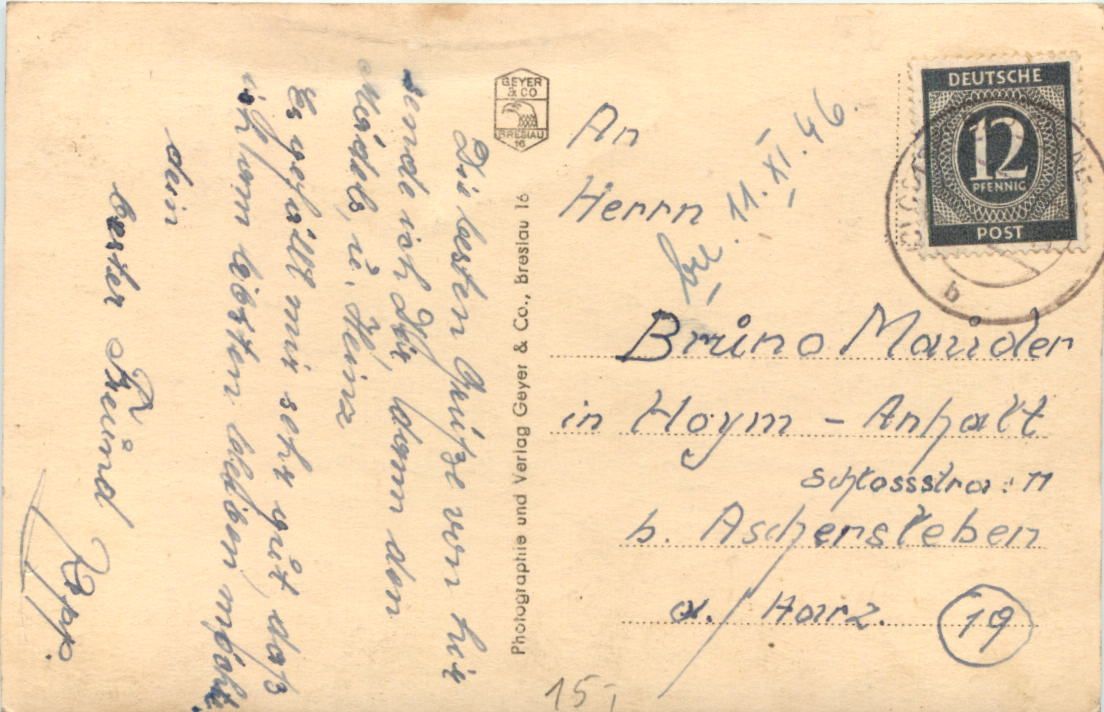 Die besten Grüße von hir
sende ich Dir, dann den
Mädels, ü. Heinz
Es gefällt mir sehr gut daß
ich am liebsten bleiben möcht.
dein
bester Freund
GEYER
& CO
BRESLAU
16
Photographie und Verlag Geyer & Co., Breslau 16
DEUTSCHE
12
PFENNIG
POST
b
An
Herrn
11. XI. 46.
Bruno Mauder
in Hoym - Anhalt
Schlossstra: 11
b. Aschersleben
a./Harz.
19
15